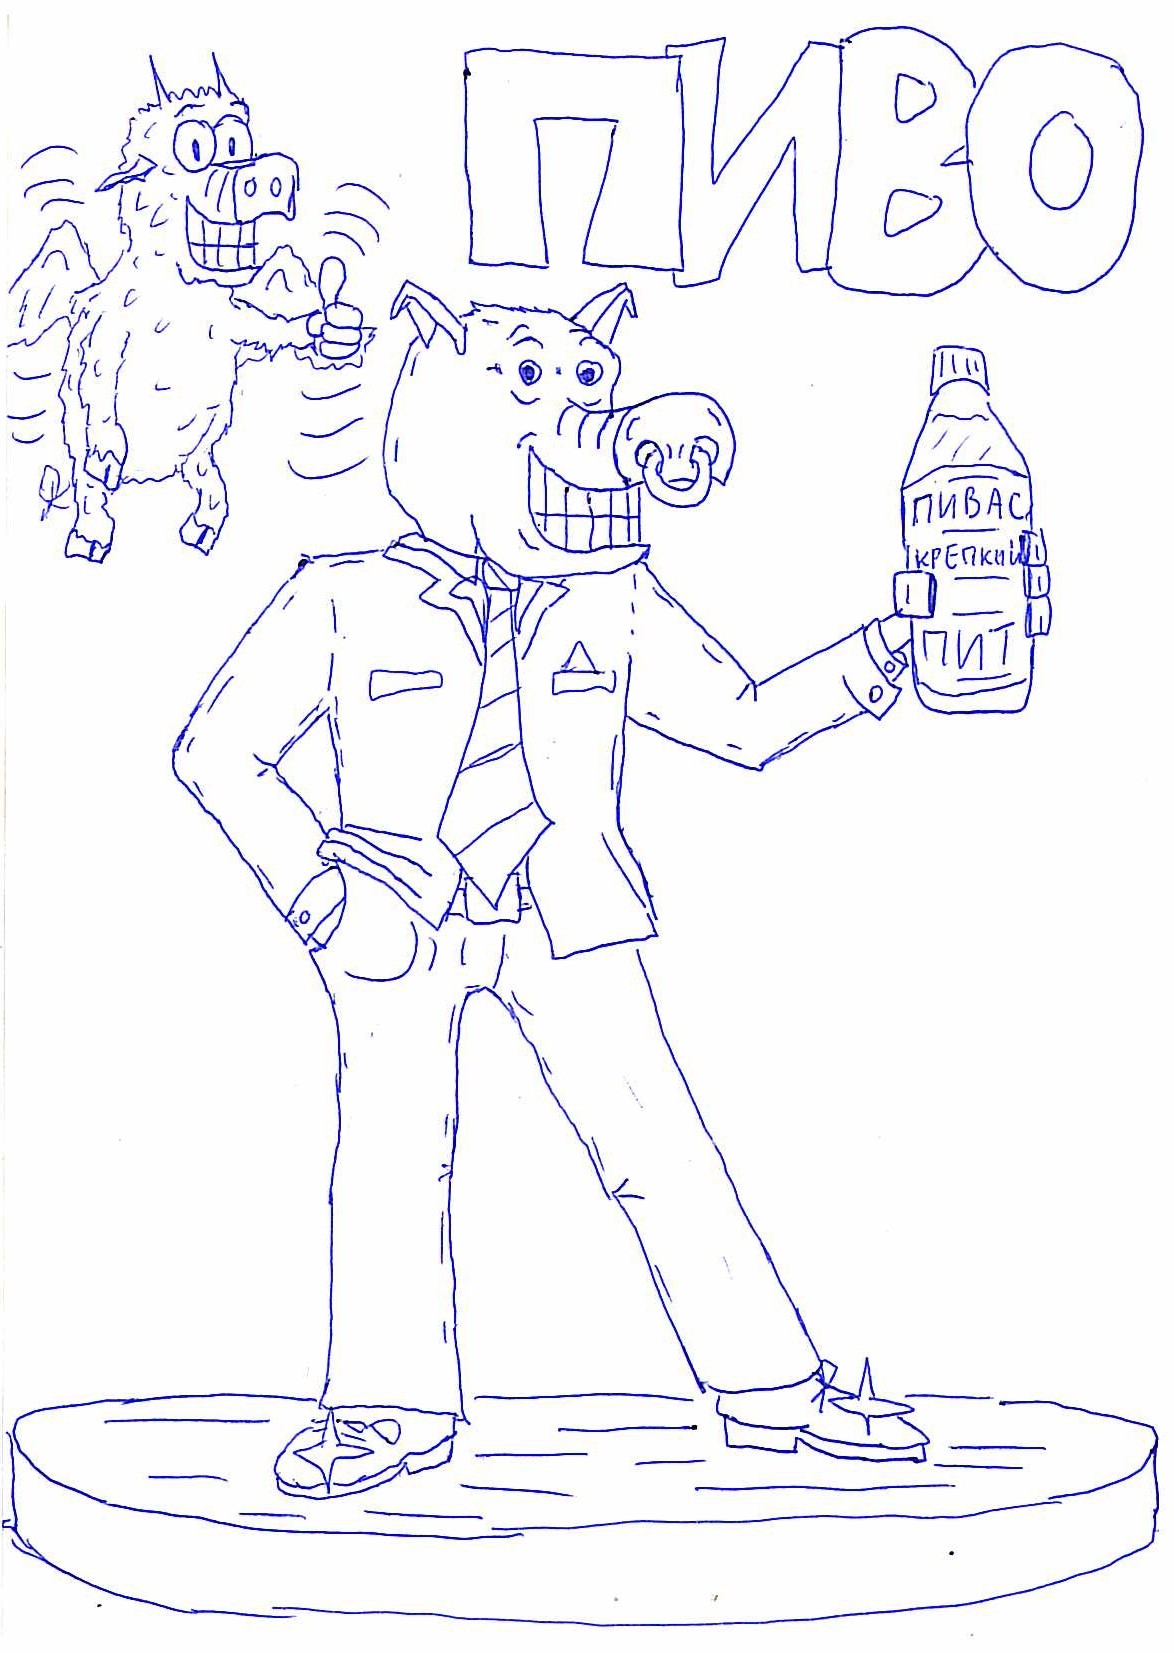 ПИВО
ПИВАС
КРЕПКИЙ
ПИТ